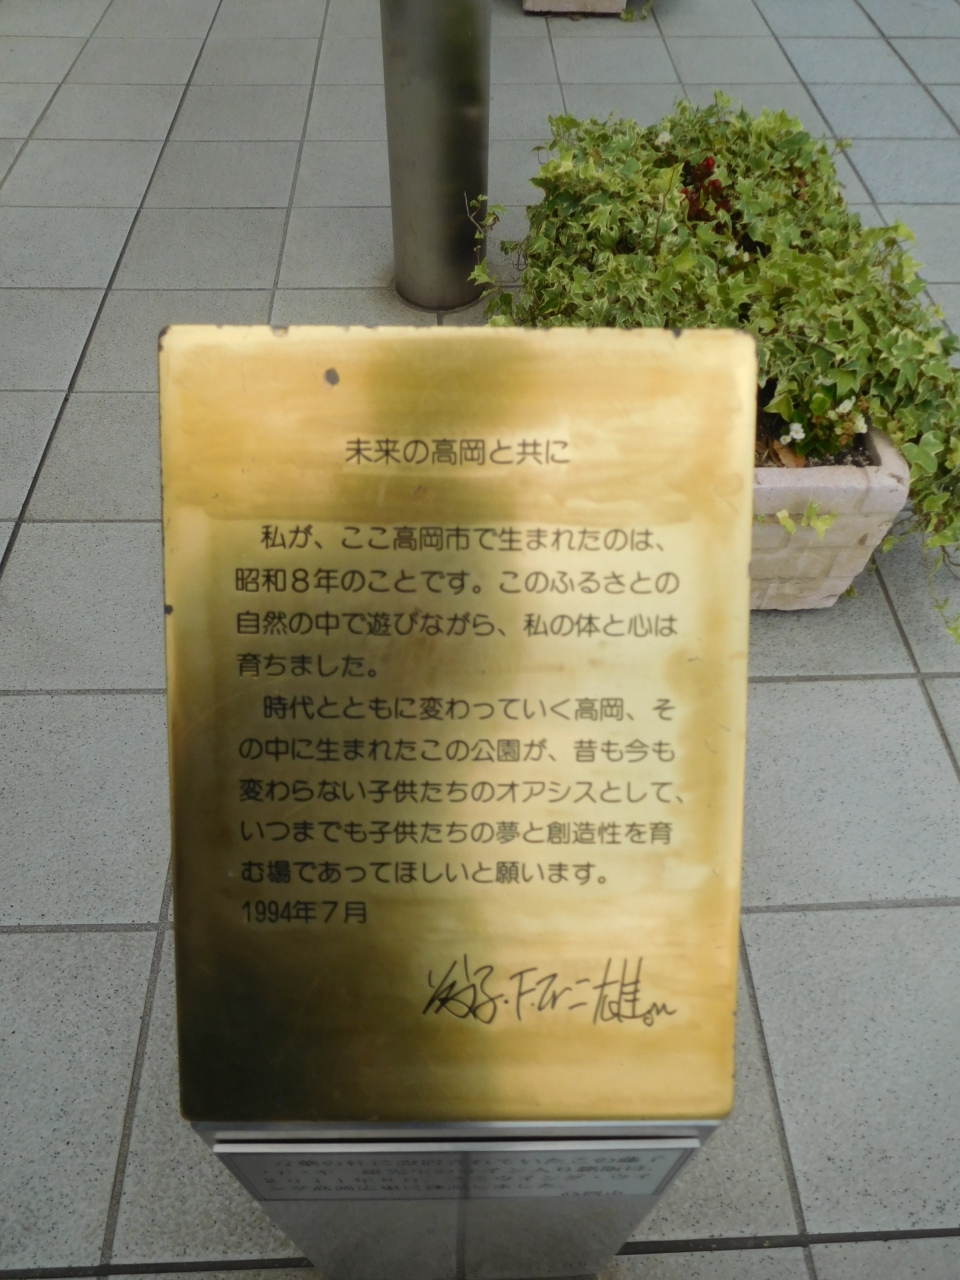 未来の高岡と共に
私が、ここ高岡市で生まれたのは、
昭和8年のことです。このふるさとの
自然の中で遊びながら、私の体と心は
育ちました。
時代とともに変わっていく高岡、そ
の中に生まれたこの公園が、昔も今も
変わらない子供たちのオアシスとして、
いつまでも子供たちの夢と創造性を育
む場であってほしいと願います。
1994年7月
F
不二雄